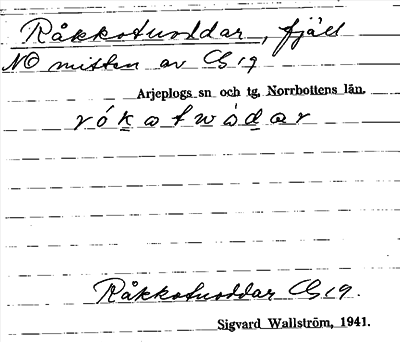 Råkkotuoddar, fjäll
NO mitten av C19
Arjeplogs sn och tg, Norrbottens län.
rókatwòdar
Råkkotuoddar C19.
Sigvard Wallström, 1941.